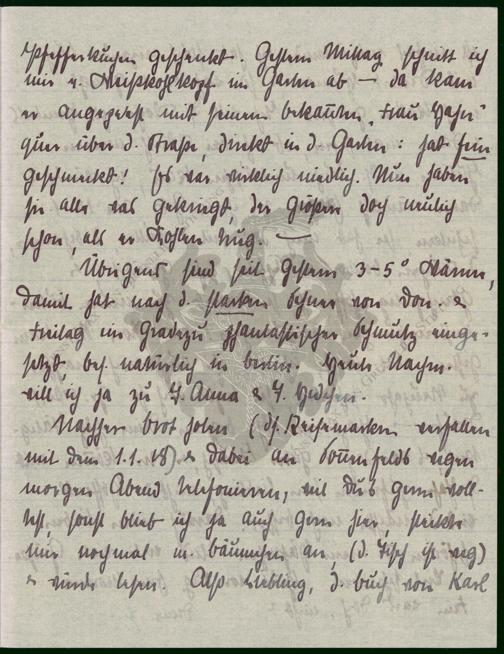 Pfefferkuchen geschenkt. Gestern Mittag schnitt ich
mir n. Weißkohlkopf im Garten ab — da kam
er angeprest mit seinem bekannten „Frau Hahn“
quer über d. Straße, direkt in d. Garten: hat fein
geschmeckt! Es war wirklich niedlich. Nun haben
sie alle was gekriegt, der Größere doch neulich
schon, als er Kohlen trug. —
Übrigens sind seit gestern 3-5° Wärme,
damit hat nach d. starken Schnee von Don. &
Freitag ein geradezu phantastischer Schmutz einge-
setzt, bes. natürlich in Berlin. Heute Nachm.
will ich ja zu T. Anna & T.
Nachher Brot holen (ds. Reisemarken verfallen
mit dem 1.1.18) & dabei an Sonnenfelds wegen
morgen Abend telefonieren, weil Dus gern woll-
test, sonst blieb ich ja auch gern hier, steckte
mir nochmal m. Bäumchen an, (d. Tisch ist weg)
& würde lesen. Also Liebling, d. Buch von Karl